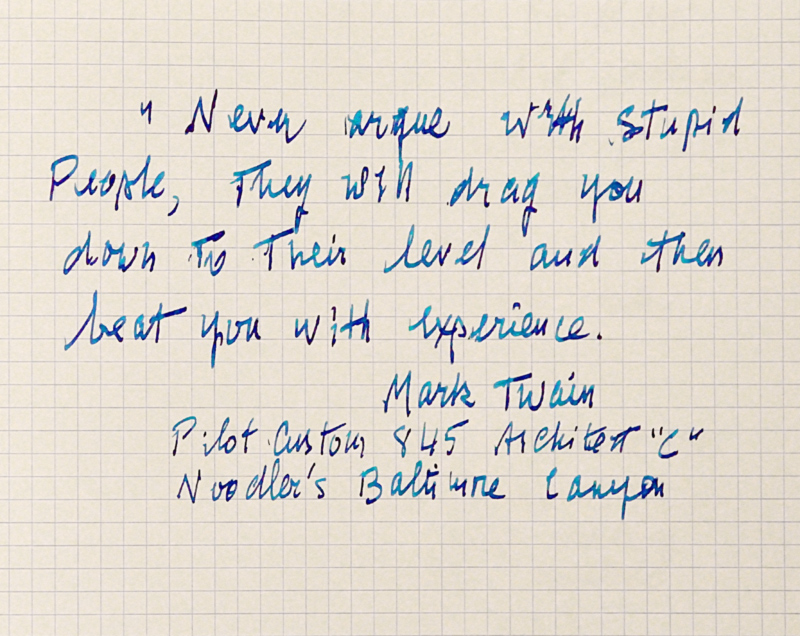 " Never argue with stupid
People, They will drag you
down To Their level and then
beat you with experience.
Mark Twain
Pilot Custom 845 Architect "C"
Noodler's Baltimore Canyon